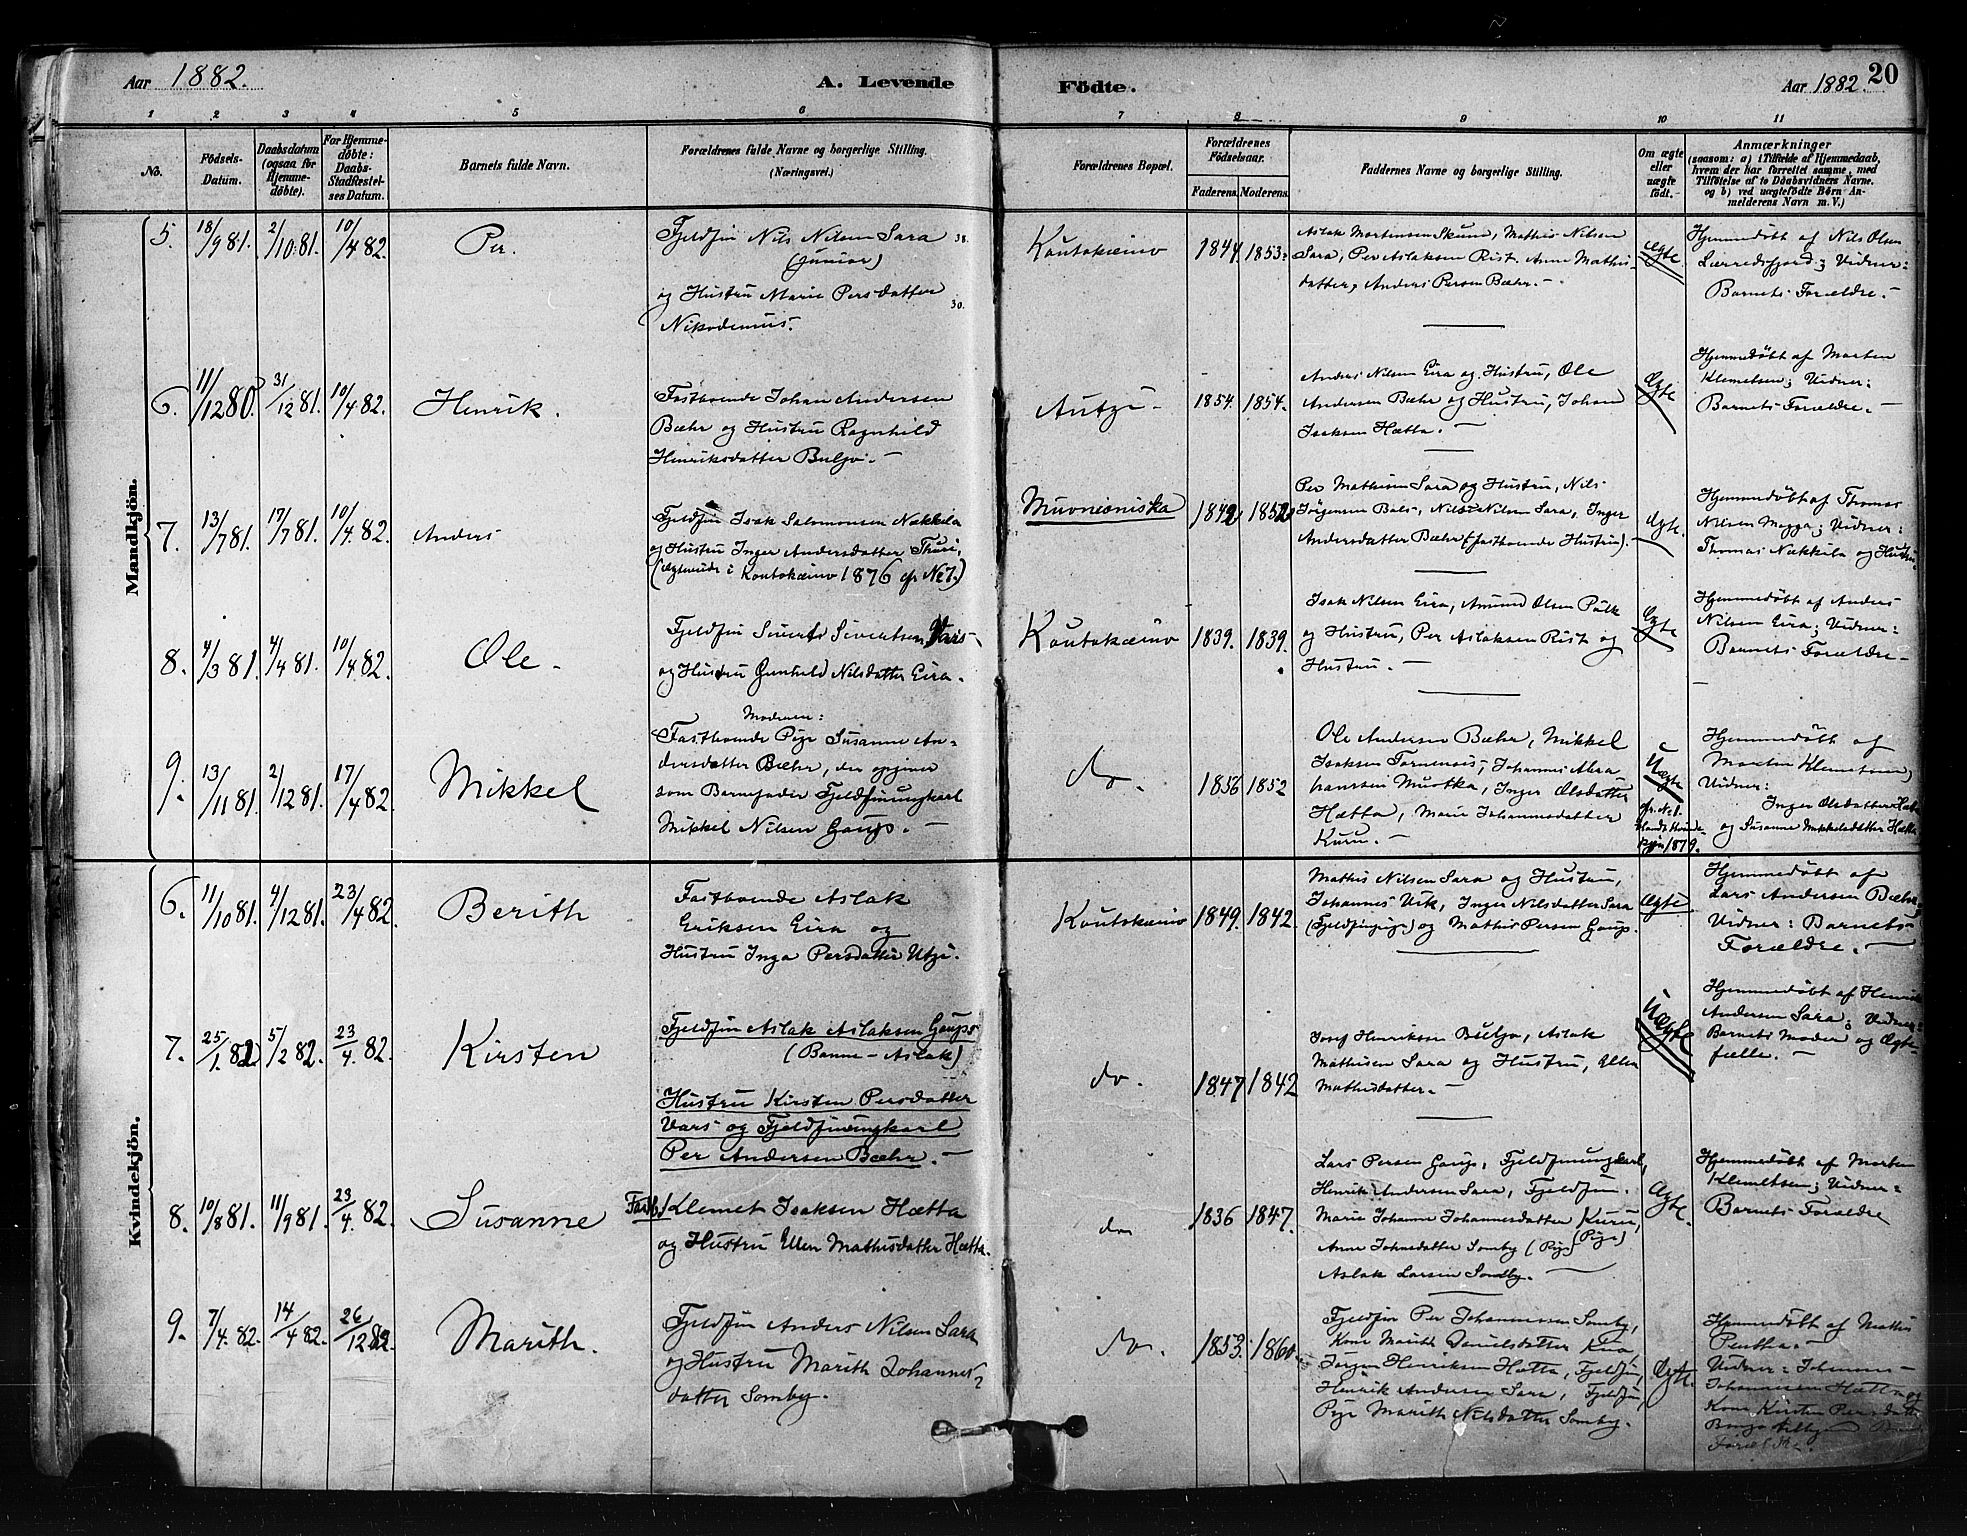 Aar 1882.
A. Levende
Födte.
Aar 1882.
20
1 2 3 4 5 6 7 8 9 10 11
No.
Födsels-
Datum.
Daabsdatum
(ogsaa for
Hjemme-
døbte).
For Hjemme-
døbte:
Daabs-
Stadfæstel-
ses Datum.
Barnets fulde Navn.
Forældrenes fulde Navne og borgerlige Stilling.
(Næringsvei.)
Forældrenes Bopæl.
Forældrenes
Födselsaar.
Faderens. Moderens.
Faddernes Navne og borgerlige Stilling.
Om ægte
eller
uægte
født.
Anmærkninger
(saasom: a) i Tilfælde af Hjemmedaab,
hvem der har forrettet samme, med
Tilføielse af to Daabsvidners Navne.
og b) ved uægtefødte Børn An-
melderens Navn m. V.)
Mandkjön.
5. 18/9 81. 2/10 81. 10/4 82. Per.
Fjeldfin Nils Nilsen Sara 38.
(junior)
og Hustru Marie Persdatter
30.
Nikodemus.
Koutokæino 1844. 1853.
Aslak Mortensen Skum, Mathis Nilsen
Sara, Per Aslaksen Rist. Anne Mathis-
datter, Anders Persen Bæhr. -
Ægte
Hjemmedøbt af Nils Olsen
Lerredsfjord; Vidner:
Barnets Forældre. -
6. 11/12 80. 31/12 81. 10/4 82. Henrik.
Fastboende Johan Andersen
Bæhr og Hustru Ragnhild
Henriksdatter Buljo. -
Autzi - 1854. 1854.
Anders Nilsen Eira og Hustru, Ole
Andersen Bæhr og Hustru, Johan
Isaksen Hætta. -
Ægte
Hjemmedøbt af Morten
Klemetsen; Vidner:
Barnets Forældre. -
7. 13/7 81. 17/7 81. 10/4 82. Anders
Fjeldfin Isak Salomonsen Nækkila
og Hustru Inger Andersdatter Thuri,
(Ægteviede i Koutokæino 1876 cfr No 7.)
Muvnesniska 1842 1852
Per Mathisen Sara og Hustru, Nils
Jörgensen Bals, Nils Nilsen Sara, Inger
Andersdatter Bæhr (fastboende Hustru).
Ægte.
Hjemmedøbt af Thomas
Nilsen Magga; Vidner:
Thomas Nækkila og Hustru
8. 4/3 81. 4/4 81. 10/4 82. Ole -
Fjeldfin Sivert Sivertsen Vars -
og Hustru Gunhild Nilsdatter Eira.
Koutokæino 1839. 1839.
Isak Nilsen Eira, Amund Olsen Pulk
og Hustru, Per Aslaksen Rist og
Hustru. -
Ægte
Hjemmedøbt af Anders
Nilsen Eira; Vidner:
Barnets Forældre -
9. 13/11 81. 2/12 81. 17/4 82. Mikkel
Moderen:
Fastboende Pige Susanne An-
dersdatter Bæhr, der opgiver
som Barnefader Fjeldfinungkarl
Mikkel Nilsen Gaup. -
do. 1856 1852
Ole Andersen Bæhr, Mikkel
Isaksen Tornensis, Johannes Abra
hamsen Muotka, Inger Olsdatter
Hætta, Marie Johannesdatter
Kuru. -
Uægte
1879.
Hjemmedøbt af
Morten Klemetsen;
Vidner:
Inger Olsdatter Hætta
og Susanne Mikkelsdatter Hætta
Kvindekjön.
6. 11/10 81. 4/12 81. 23/4 82. Berith
Fastboende Aslak
Eriksen Eira og
Hustru Inga Persdatter Utzi.
Koutokæino 1849. 1842.
Mathis Nilsen Sara og Hustru,
Johannes Vik, Inger Nilsdatter Sara
(Fjeldfinpige) og Mathis Persen Gaup.
Ægte
Hjemmedøbt af
Lars Andersen Bæhr,
Vidner: Barnets
Forældre. -
7. 25/1 82 5/2 82. 23/4 82. Kirsten
Fjeldfin Aslak Aslaksen Gaups
(Banne-Aslak)
Hustru Kirsten Persdatter
Vars og Fjeldfinungkarl
Per Andersen Bæhr. -
do. 1847 1842
Josef Henriksen Buljo, Aslak
Mathisen Sara og Hustru, Ellen
Mathisdatter. -
Uægte
Hjemmedøbt af Henrik
Andersen Sara; Vidner:
Barnets Moder og Ægte-
fælle. -
8. 10/8 81. 11/9 81. 23/4 82. Susanne
Fastb. Klemet Isaksen Hætta
og Hustru Ellen Mathisdatter Hætta.
do 1836 1847.
Lars Persen Gaup, Fjeldfinungkarl,
Henrik Andersen Sara, Fjeldfin.
Marie Johanne Johannesdatter Kuru,
(Pige)
Anne Johnsdatter Somby (Pige)
Aslak Larsen Somby. -
Ægte.
Hjemmedøbt af Morten
Klemetsen; Vidner:
Barnets Forældre
9. 7/4 82. 14/4 82. 26/12 82. Marith.
Fjeldfin Anders Nilsen Sara
og Hustru Marith Johannes-
datter Somby.
do. 1853. 1860.
Fjeldfin Per Johannessen Somby,
Kone Marith Danielsdatter
Jørgen Henriksen Hætta, Fjeldfin,
Henrik Andersen Sara, Fjeldfin,
Pige Marith Nilsdatter Somby.
Ægte.
Hjemmedøbt af Mathis
Pentha. -
Vidner: Johannes
Johannessen Hætta og
Kone Kirsten Persdatter